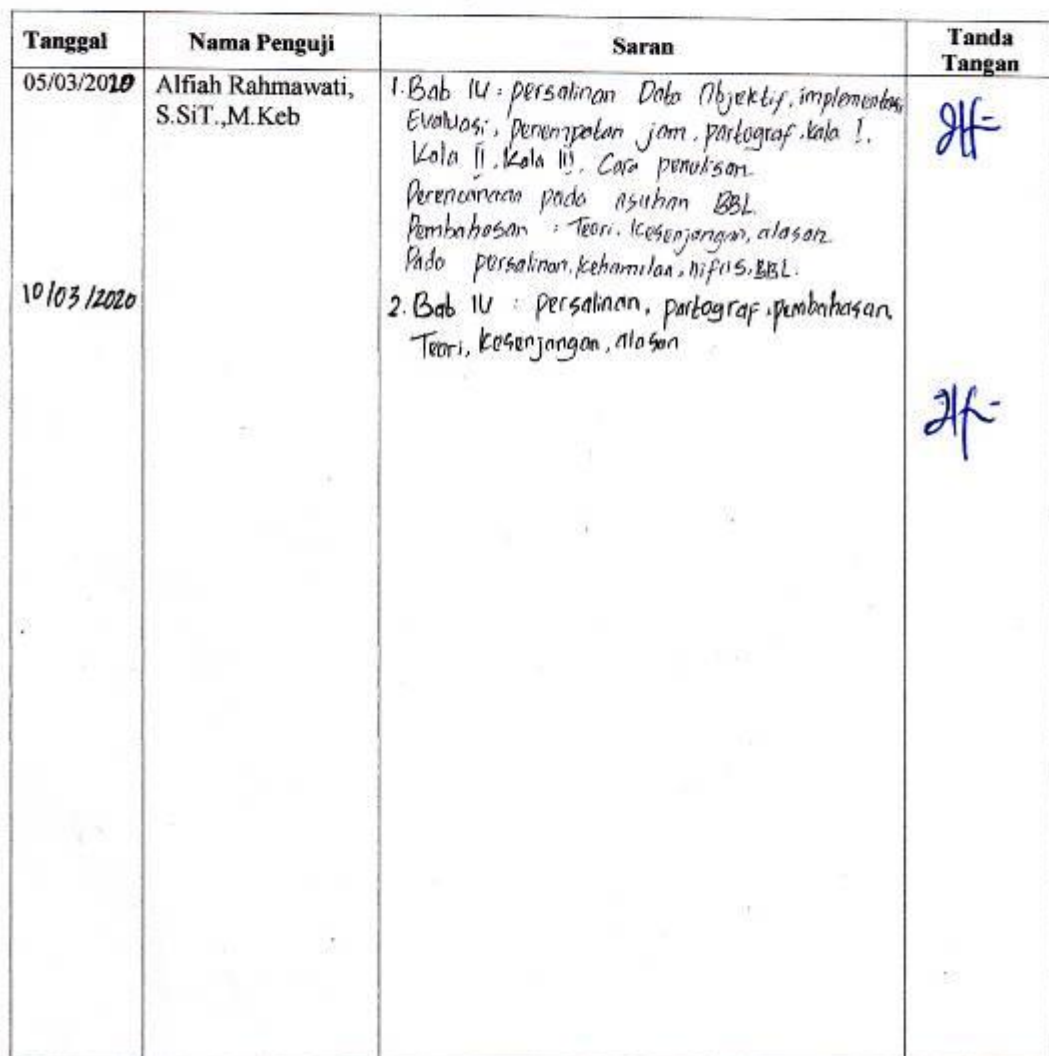 Tanggal Nama Penguji Saran Tanda Tangan
05/03/2020 Alfiah Rahmawati, S.SiT.,M.Keb
1. Bab IV : persalinan Data Objektif, implementasi
Evaluasi, penempatan jam, partograf, kala I.
Kala II, Kala III, Cara penulisan
Perencanaan pada asuhan BBL
Pembahasan : Teori, kesenjangan, alasan
Pada persalinan, kehamilan, nifas, BBL.
10/03/2020
2. Bab IV : persalinan, partograf, pembahasan,
Teori, kesenjangan, alasan